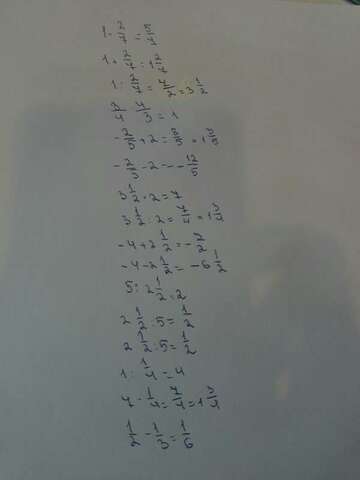 1 - 2/7 = 5/7
1 + 2/7 = 1 2/7
1 : 2/7 = 7/2 = 3 1/2
- 2/5 + 2 = 8/5 = 1 3/5
- 2/5 - 2 = - 12/5
3 1/2 · 2 = 7
3 1/2 : 2 = 7/4 = 1 3/4
-4 - 2 1/2 = -6 1/2
5 : 2 1/2 = 2
2 1/2 : 5 = 1/2
2 1/2 : 5 = 1/2
1 : 1/4 = 4
7 · 1/4 = 7/4 = 1 3/4
1/2 - 1/3 = 1/6